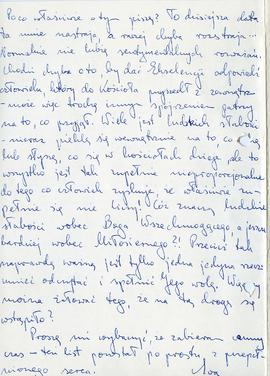 Po co właściwie o tym piszę? To dzisiejsza data
ta mnie nastraja, a raczej chyba rozstraja...
Normalnie nie lubię sentymentalnych rozważań.
Chodzi chyba o to, by dać Ekscelencji odpowiedź
człowieka, który do Kościoła przyszedł z zewnątrz
- może więc trochę innym spojrzeniem patrzy
na to, co przyjął. Wiele jest ludzkich słabości
- nieraz się wewnętrznie na to, co
lub słyszę, co się w kościołach dzieje, ale to
wszystko jest tak zupełnie nieproporcjonalne
do tego co człowiek zyskuje, że właściwie zu-
pełnie się nie liczy! Cóż znaczą ludzkie
słabości wobec Boga Wszechmogącego, a jeszcze
bardziej wobec Miłosiernego?! Przecież tak
naprawdę ważna jest tylko jedna jedyna rzecz:
umieć odczytać i spełnić Jego wolę. Więc czy
można żałować tego, że na tą drogę się
wstąpiło?
Proszę mi wybaczyć, że zabieram cenny
czas - ten list powstał po prostu z przepeł-
nionego serca.